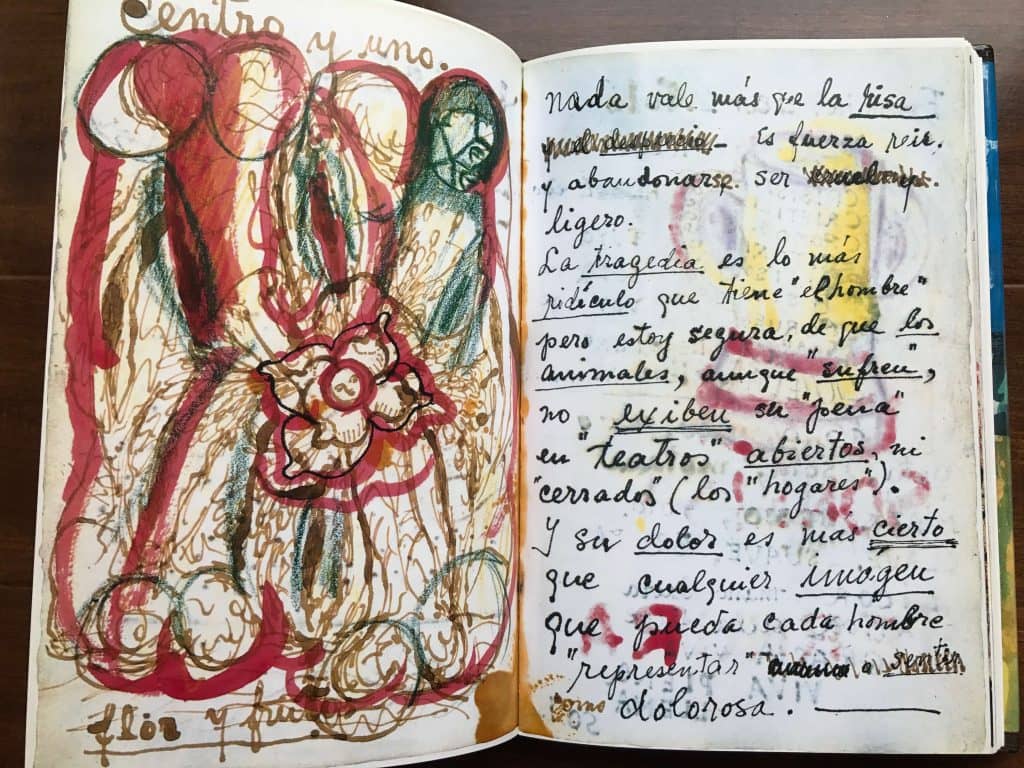 Centro y uno.
flor y fruto
nada vale más que la risa
y el desprecio – Es fuerza reir.
y abandonarse. ser cruel y
ligero.
La tragedia es lo más
ridículo que tiene "el hombre"
pero estoy segura, de que los
animales, aunque "sufren",
no exiben su "pena"
en "teatros" abiertos, ni
"cerrados" (los "hogares").
Y su dolor es más cierto
que cualquier imagen
que pueda cada hombre
"representar" sentir
como dolorosa.
VIVA